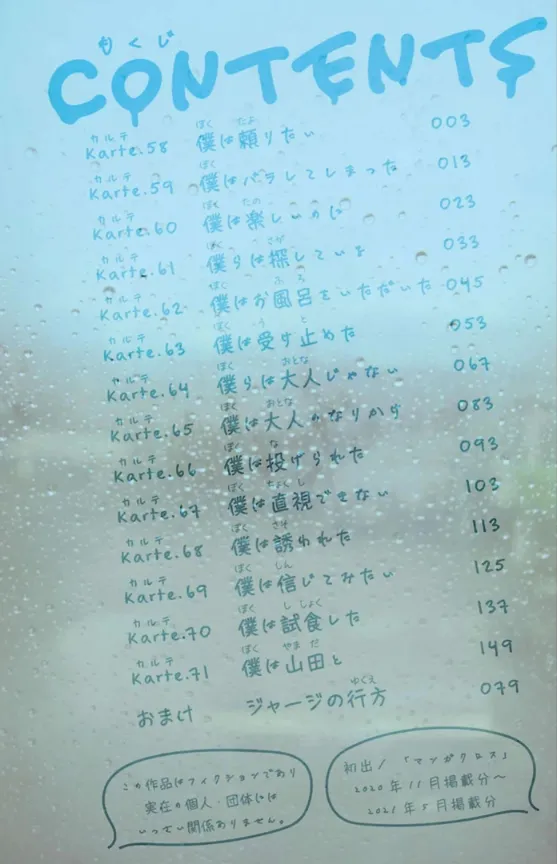 もくじ
CONTENTS
カルテ ぼく たよ
Karte.58 僕は頼りたい 003
カルテ ぼく
Karte.59 僕はバラしてしまった 013
カルテ ぼく たの
Karte.60 僕は楽しいのに 023
カルテ ぼく さが
Karte.61 僕らは探している 033
カルテ ぼく ふろ
Karte.62 僕はお風呂をいただいた 045
カルテ ぼく う と
Karte.63 僕は受け止めた 053
カルテ ぼく おとな
Karte.64 僕らは大人じゃない 067
カルテ ぼく おとな
Karte.65 僕は大人かなりから 083
カルテ ぼく な
Karte.66 僕は投げられた 093
カルテ ぼく ちょくし
Karte.67 僕は直視できない 103
カルテ ぼく さそ
Karte.68 僕は誘われた 113
カルテ ぼく しん
Karte.69 僕は信じてみたい 125
カルテ ぼく ししょく
Karte.70 僕は試食した 137
カルテ ぼく やまだ
Karte.71 僕は山田と 149
ゆくえ
おまけ ジャージの行方 079
この作品はフィクションであり
実在の個人・団体には
いっさい関係ありません。
初出/「マンガクロス」
2020年11月掲載分〜
2021年5月掲載分